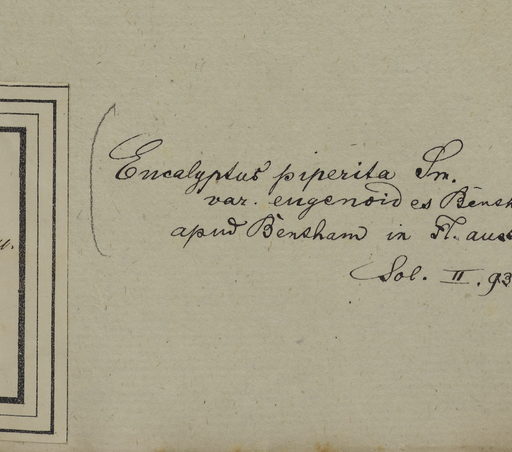 Eucalyptus piperita Sm.
var. eugenoides Bensh
apud Bensham in Fl. aus
Sol. II. 93